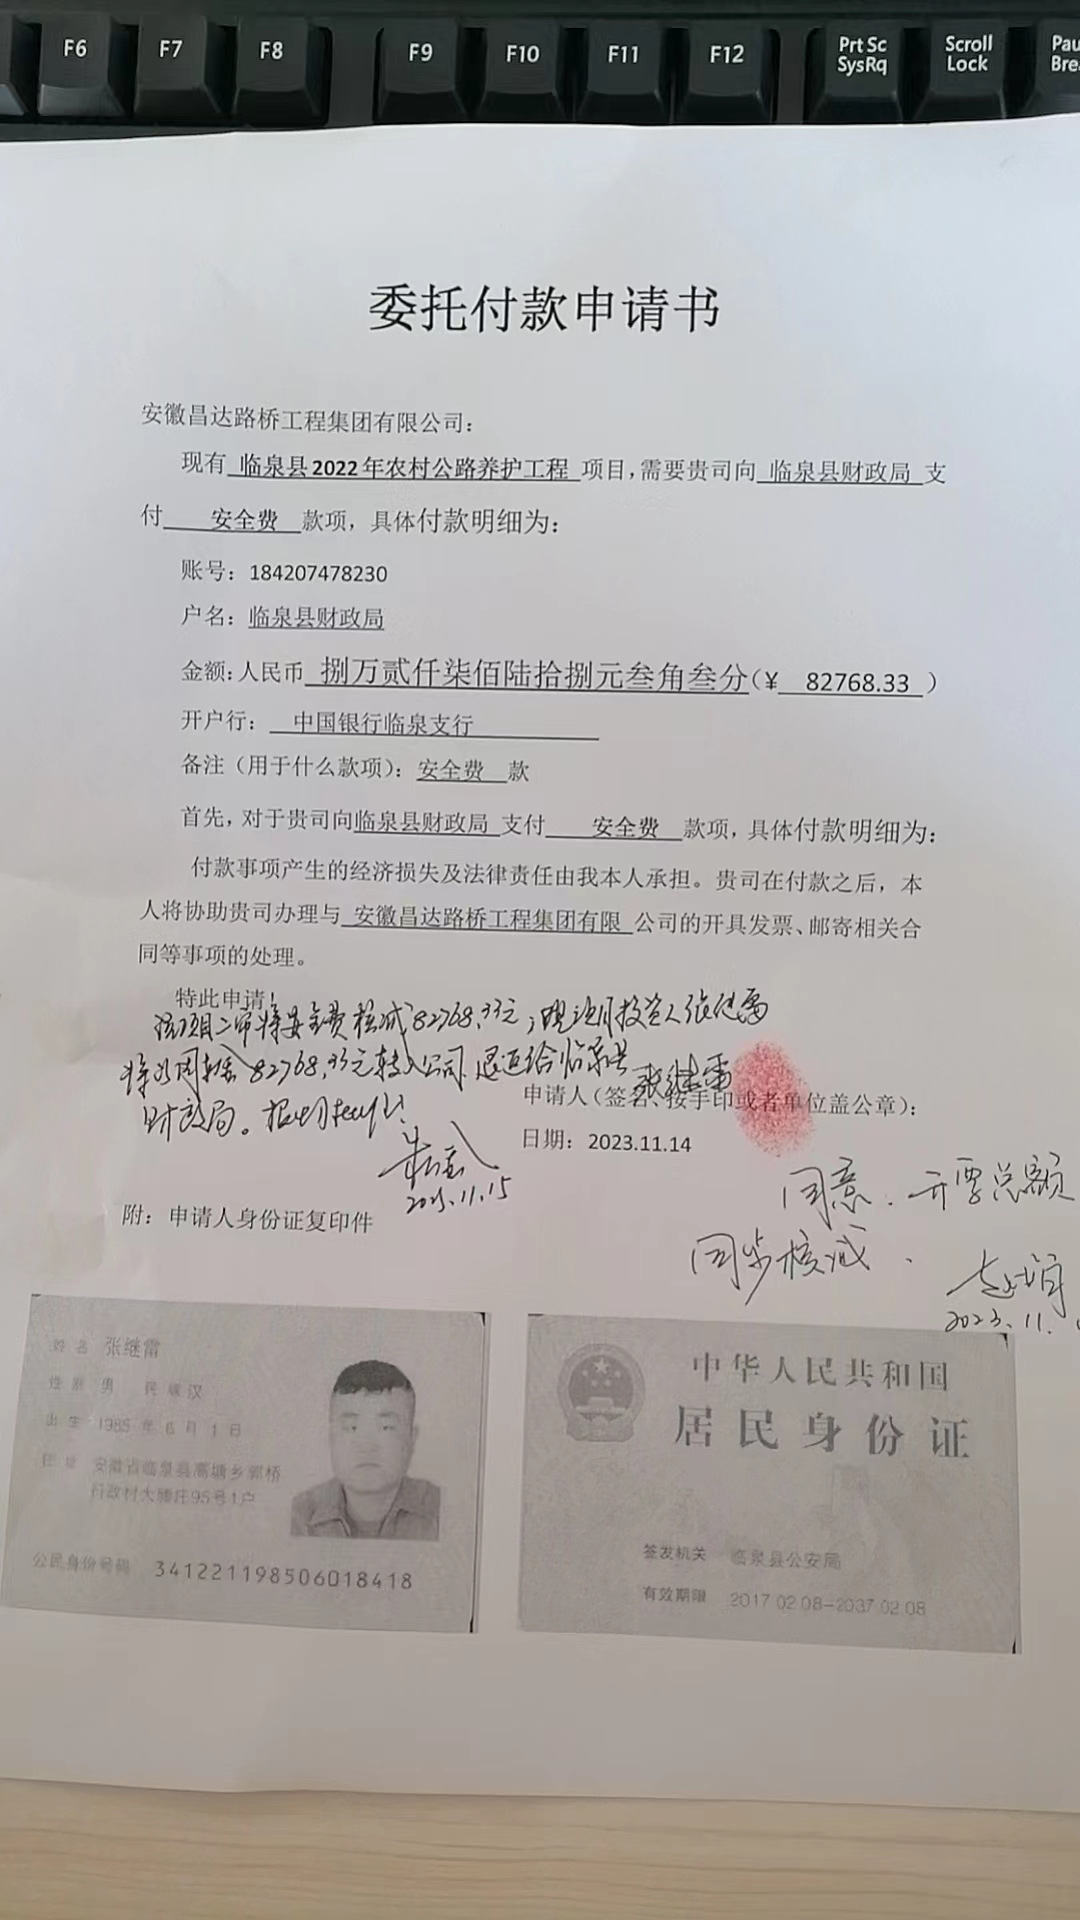 F6 F7 F8 F9 F10 F11 F12 Prt Sc SysRq Scroll Lock
委托付款申请书
安徽昌达路桥工程集团有限公司：
现有 临泉县2022年农村公路养护工程 项目，需要贵司向 临泉县财政局 支
付 安全费 款项，具体付款明细为：
账号：184207478230
户名：临泉县财政局
金额：人民币 捌万贰仟柒佰陆拾捌元叁角叁分（¥ 82768.33 ）
开户行： 中国银行临泉支行
备注（用于什么款项）：安全费 款
首先，对于贵司向临泉县财政局 支付 安全费 款项，具体付款明细为：
付款事项产生的经济损失及法律责任由我本人承担。贵司在付款之后，本
人将协助贵司办理与 安徽昌达路桥工程集团有限 公司的开具发票、邮寄相关合
同等事项的处理。
特此申请！
该项目二审将安全费核减82768.33元，现项目投资人张继雷
将 82768.33元转入公司，退还给临泉县
财政局。
张继雷
申请人（签名、按手印或者单位盖公章）：
日期：2023.11.14
2023.11.15
同意．开票总额
同步核减．
2023.11.
附：申请人身份证复印件
姓名 张继雷
性别 男 民族 汉
出生 1985年6月1日
住址 安徽省临泉县高塘乡郭桥
行政村大滕庄95号1户
公民身份号码 341221198506018418
中华人民共和国
居民身份证
签发机关 临泉县公安局
有效期限 2017.02.08-2037.02.08